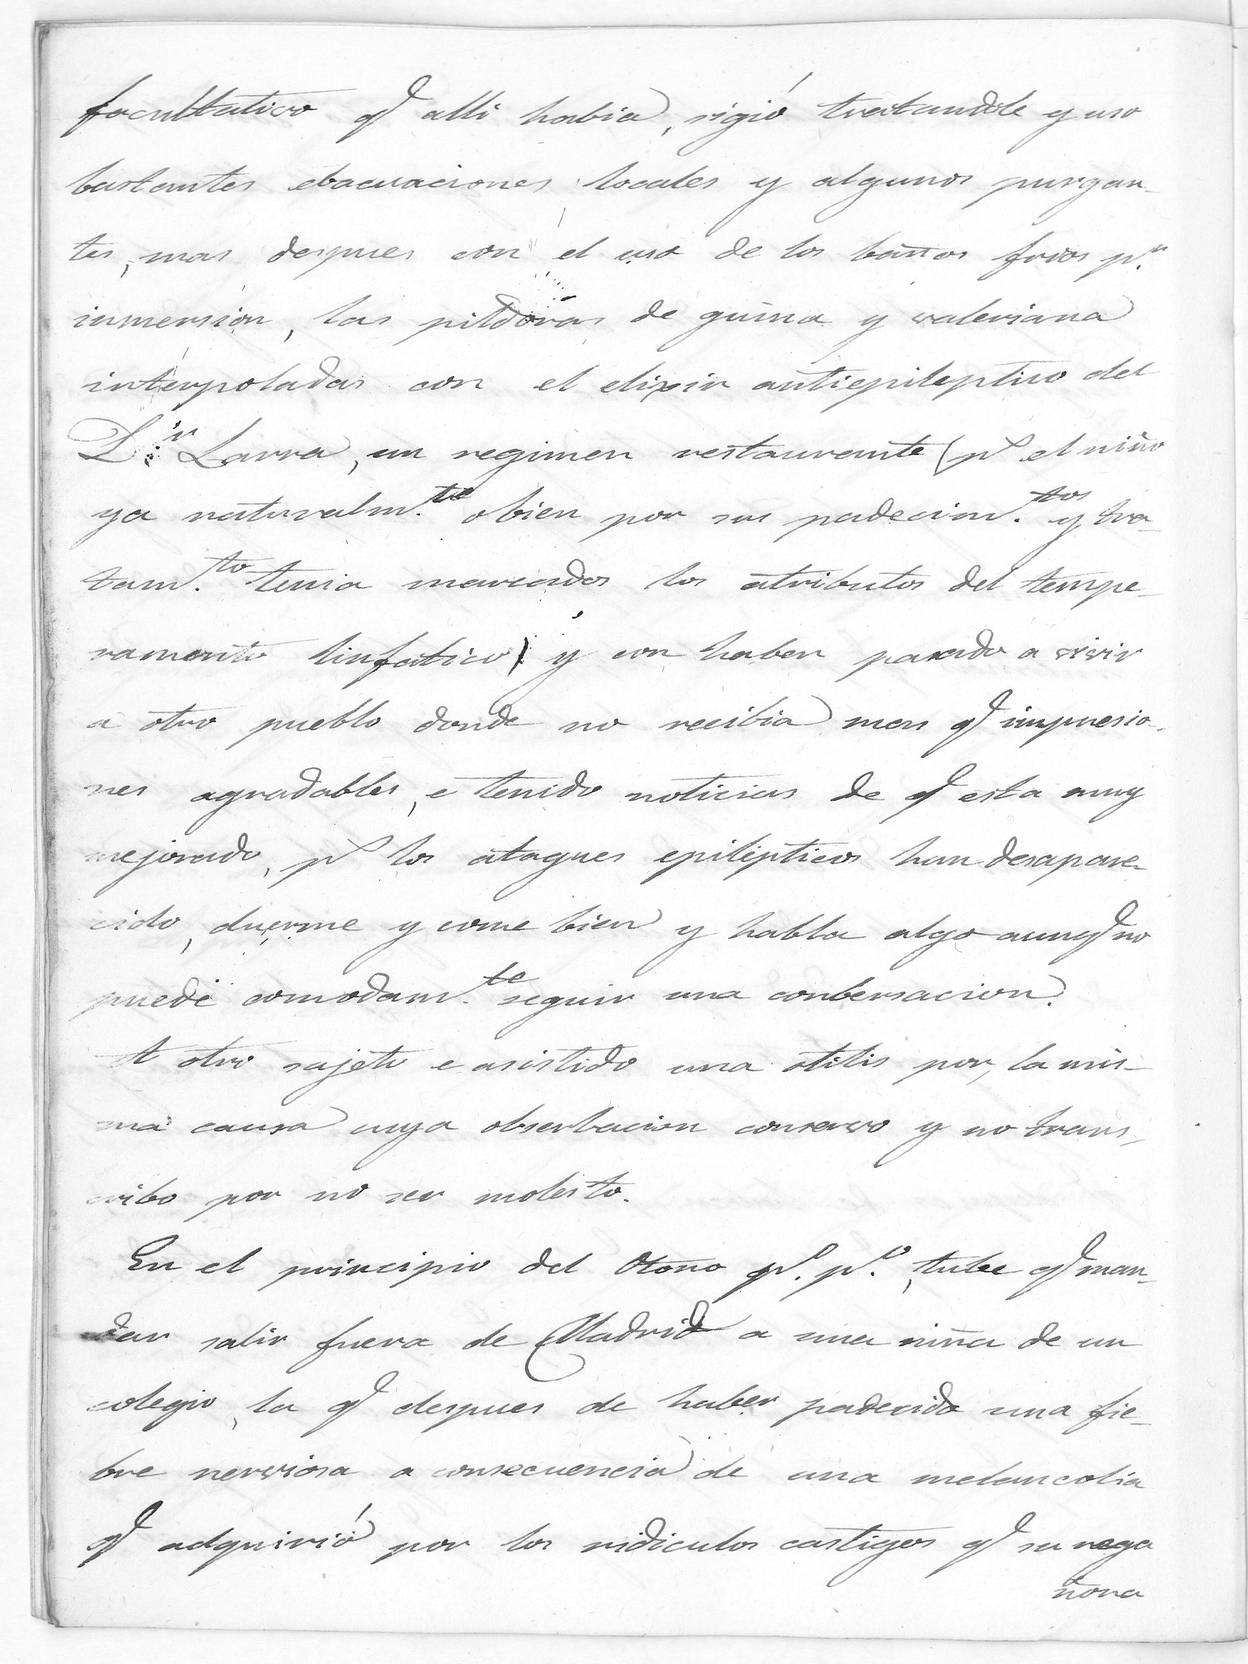 facultativo q.e alli habia, sigió tratandole y uso
bastantes ebacuaciones locales y algunos purgan-
tes, mas despues con el uso de los baños frios p.r
inmersión, las pildoras de quina y valeriana
interpoladas con el elixir antiepileptico del
D.r Larra, un regimen restaurante (p.s el niño
ya naturalm.te obien por sus padecim.tos y tra-
tam.to tenia marcados los atributos del tempe-
ramento linfatico) y con haber pasado a vivir
a otro pueblo donde no recibia mas q.e impresio-
nes agradables, e tenido noticias de q.e esta muy
mejorado, p.s los ataques epilépticos han desapare-
cido, duerme y come bien y habla algo aunq.e no
puede comodam.te seguir una conbersacion.
A otro sujeto e asistido una otitis por la mis-
ma causa cuya obserbacion conservo y no trans-
cribo por no ser molesto.
En el principio del Otoño p.o p.o, tube q.e man-
dar salir fuera de Madrid a una niña de un
colegio, la q.e despues de haber padecido una fie-
bre nerviosa a consecuencia de una melancolia
q.e adquirió por los ridiculos castigos q.e su rega
ñona